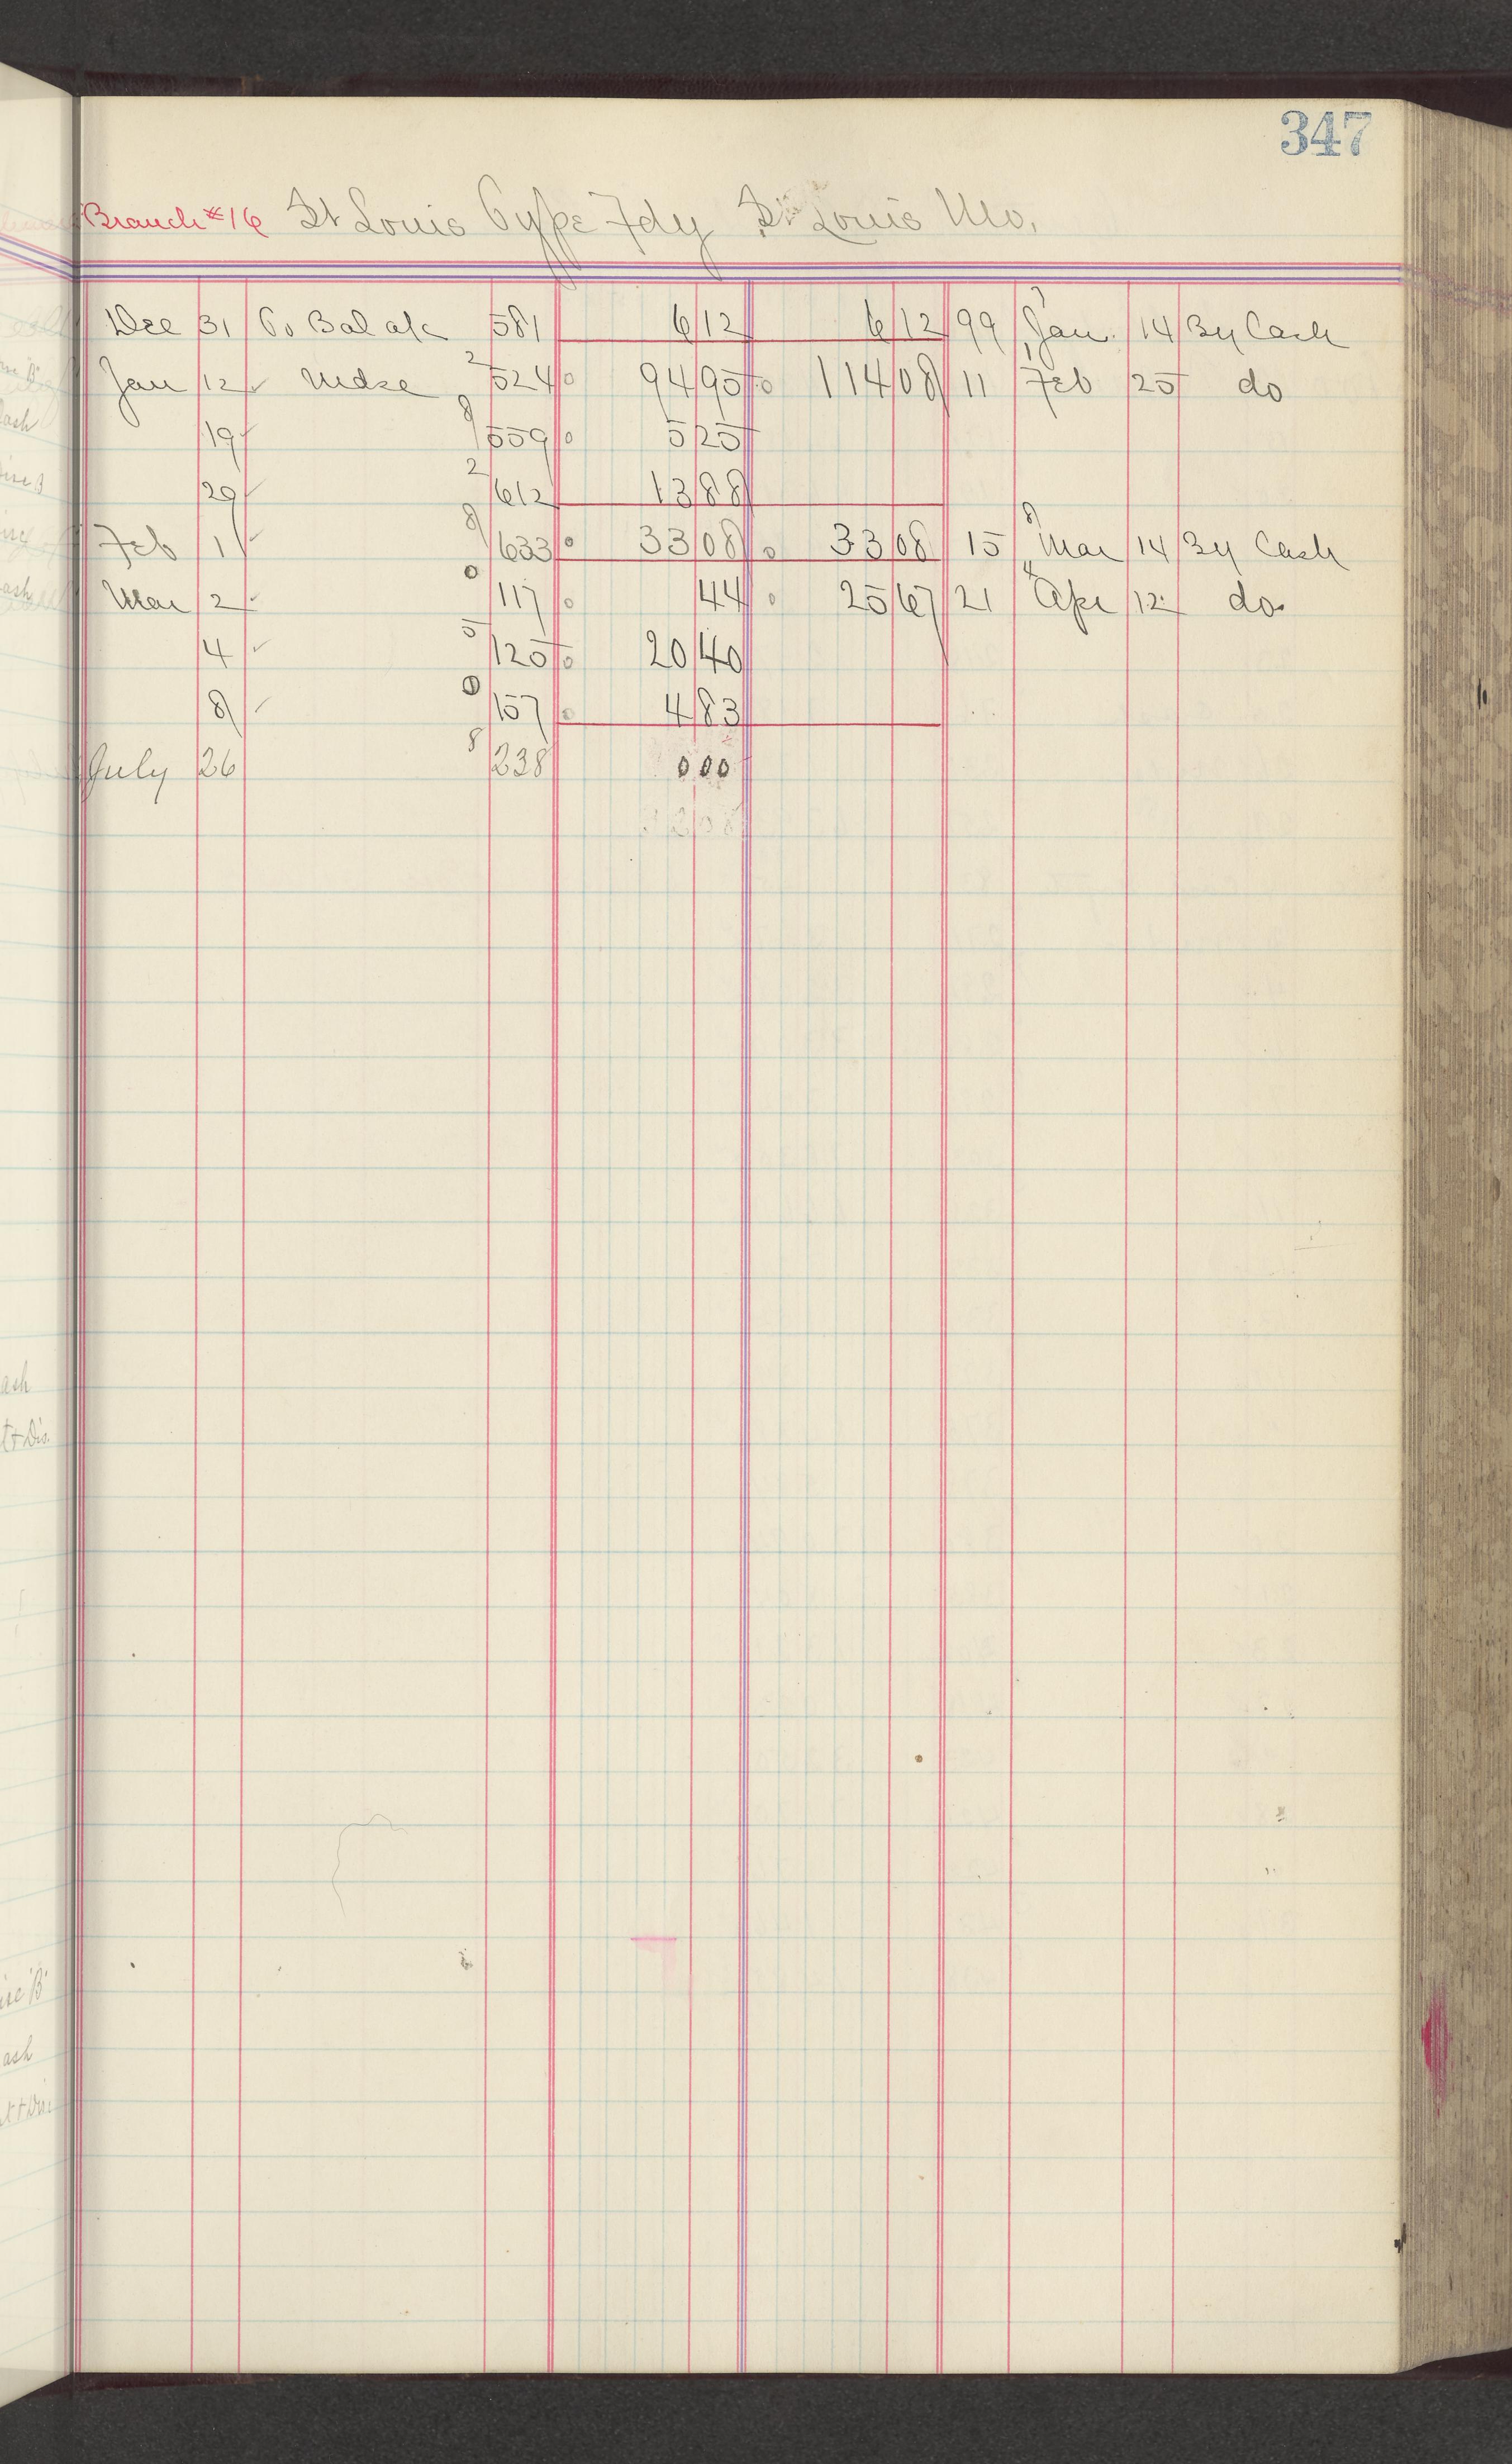 347
Branch #16 St Louis Type Fdy St Louis Mo.
Dec 31 To Bal a/c 581 6 12 6 12 99 Jan. 14 By Cash
Jan 12 ✓ Mdse 2 524 94 95 114 08 11 Feb 25 do
19 ✓ 8 559 5 25
29 ✓ 2 612 13 88
Feb 1 ✓ 8 633 33 08 33 08 15 Mar 14 By Cash
Mar 2 ✓ 0 117 44 25 67 21 Apr 12 do.
4 ✓ 5 125 20 40
8 ✓ 0 157 4 83
July 26 8 238 0 00